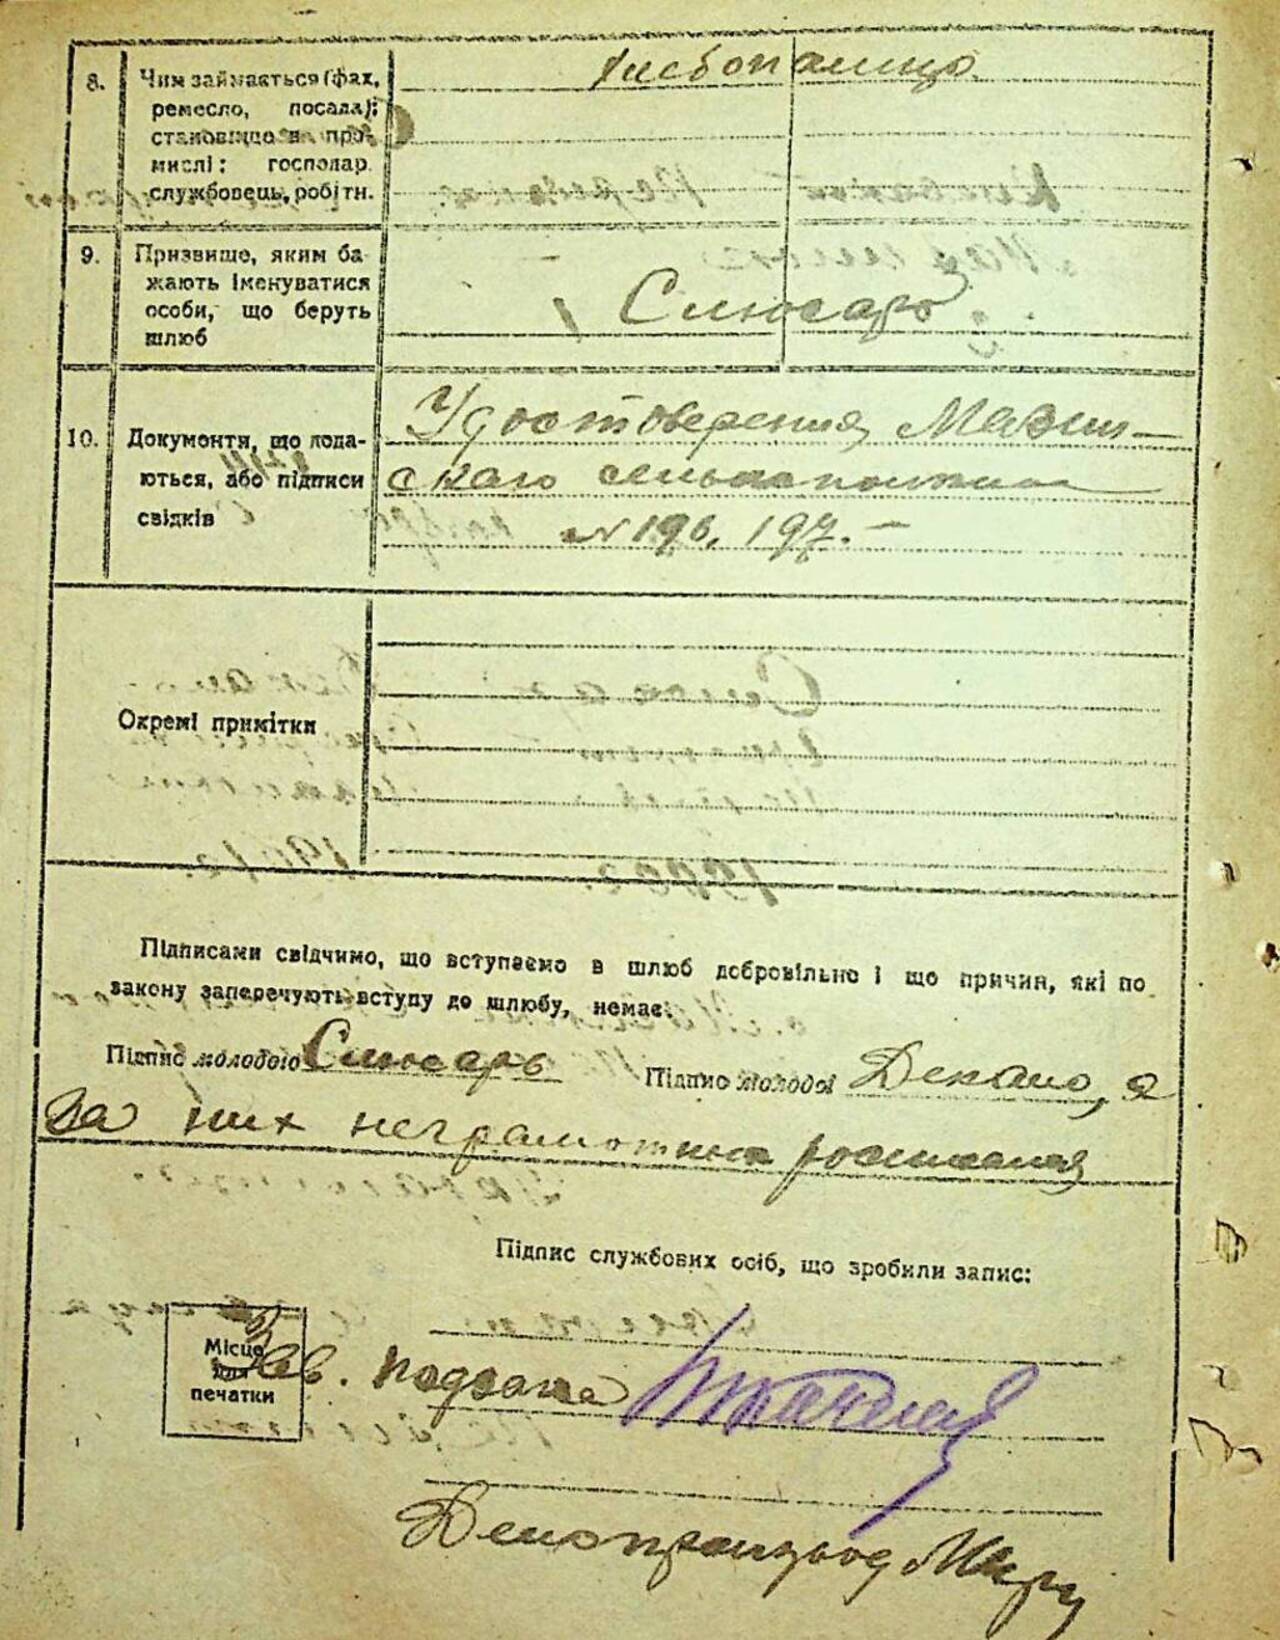 хлебопашцы
8. Чим займається (фах,
ремесло, посада);
становище в про-
мислі: господар
службовець, робітн.
9. Призвище, яким ба-
жають іменуватися
особи, що беруть
шлюб
Слюсарь
10. Документи, що пода-
ються, або підписи
свідків
Удостоверения Мазин-
скаго сельисполкома
№ 196, 197. —
Окремі примітки
Підписами свідчимо, що вступаємо в шлюб добровільно і що причин, які по
закону заперечують вступу до шлюбу, немає:
Підпис молодого Слюсарь Підпис молодої Декало, а
За них неграмотных росписался
Підпис службових осіб, що зробили запис:
Місце
для
печатки
Зав. подзагс
Делопроизвод